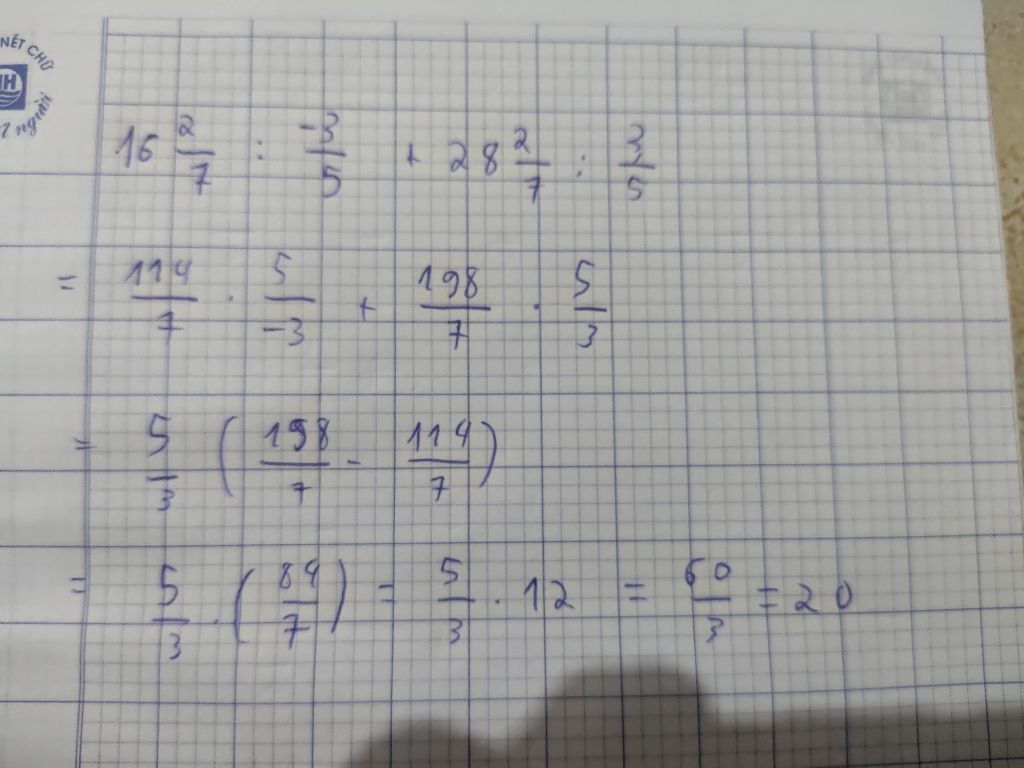 NÉT CHỮ
người
16 2/7 : -3/5 + 28 2/7 : 3/5
= 114/7 . 5/-3 + 198/7 . 5/3
= 5/3 ( 198/7 - 114/7 )
= 5/3 . ( 84/7 ) = 5/3 . 12 = 60/3 = 20